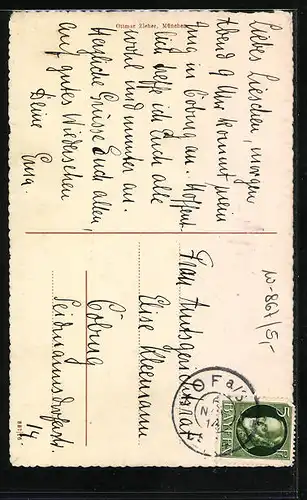 Ottmar Zieher, München
Liebes Lieschen, morgen
Abend 9 Uhr kommt mein
in Coburg an. Hoffent-
lich treff ich Euch alle
wohl und munter an.
Herzliche Grüsse Euch allen,
auf gutes Wiedersehen
Deine
Erna.
Frau Amtsgerichtsrat
Elise Kleemann
Coburg
Seidmannsdorferstr.
14
W-861/5,-
BAYERN
5